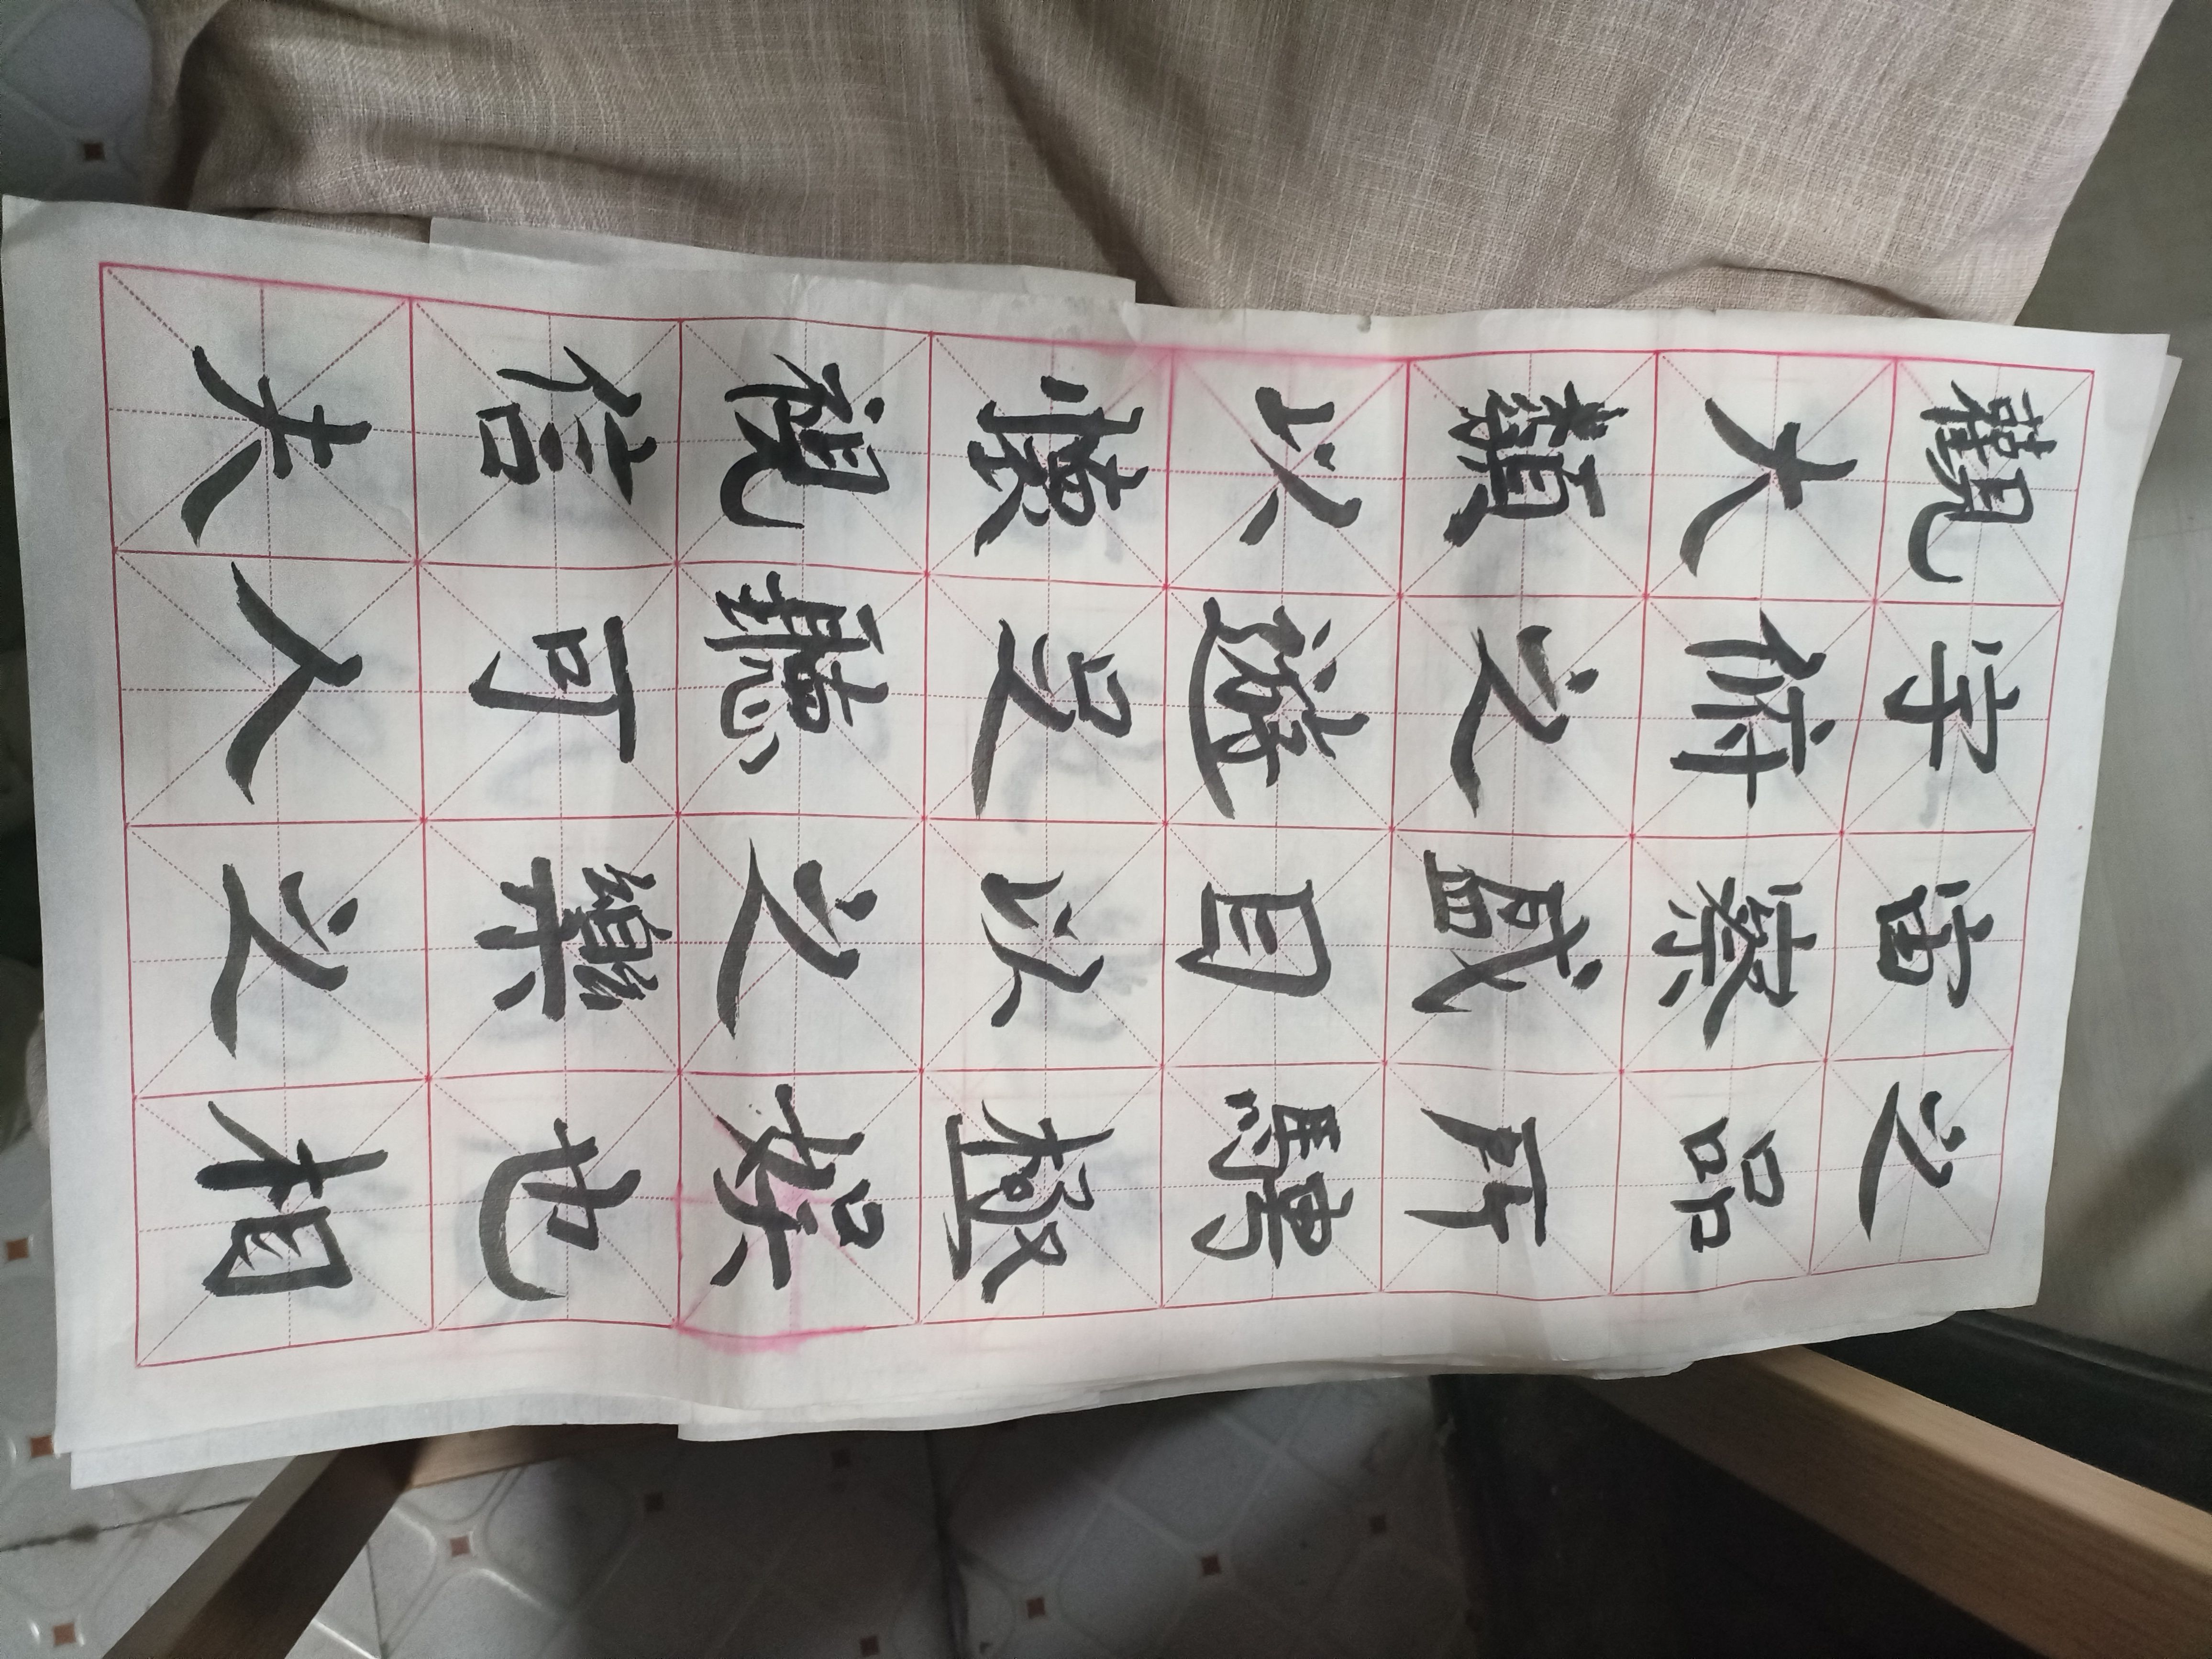 觀宇宙之
大俯察品
類之盛所
以遊目騁
懷足以極
視聽之娛
信可樂也
夫人之相